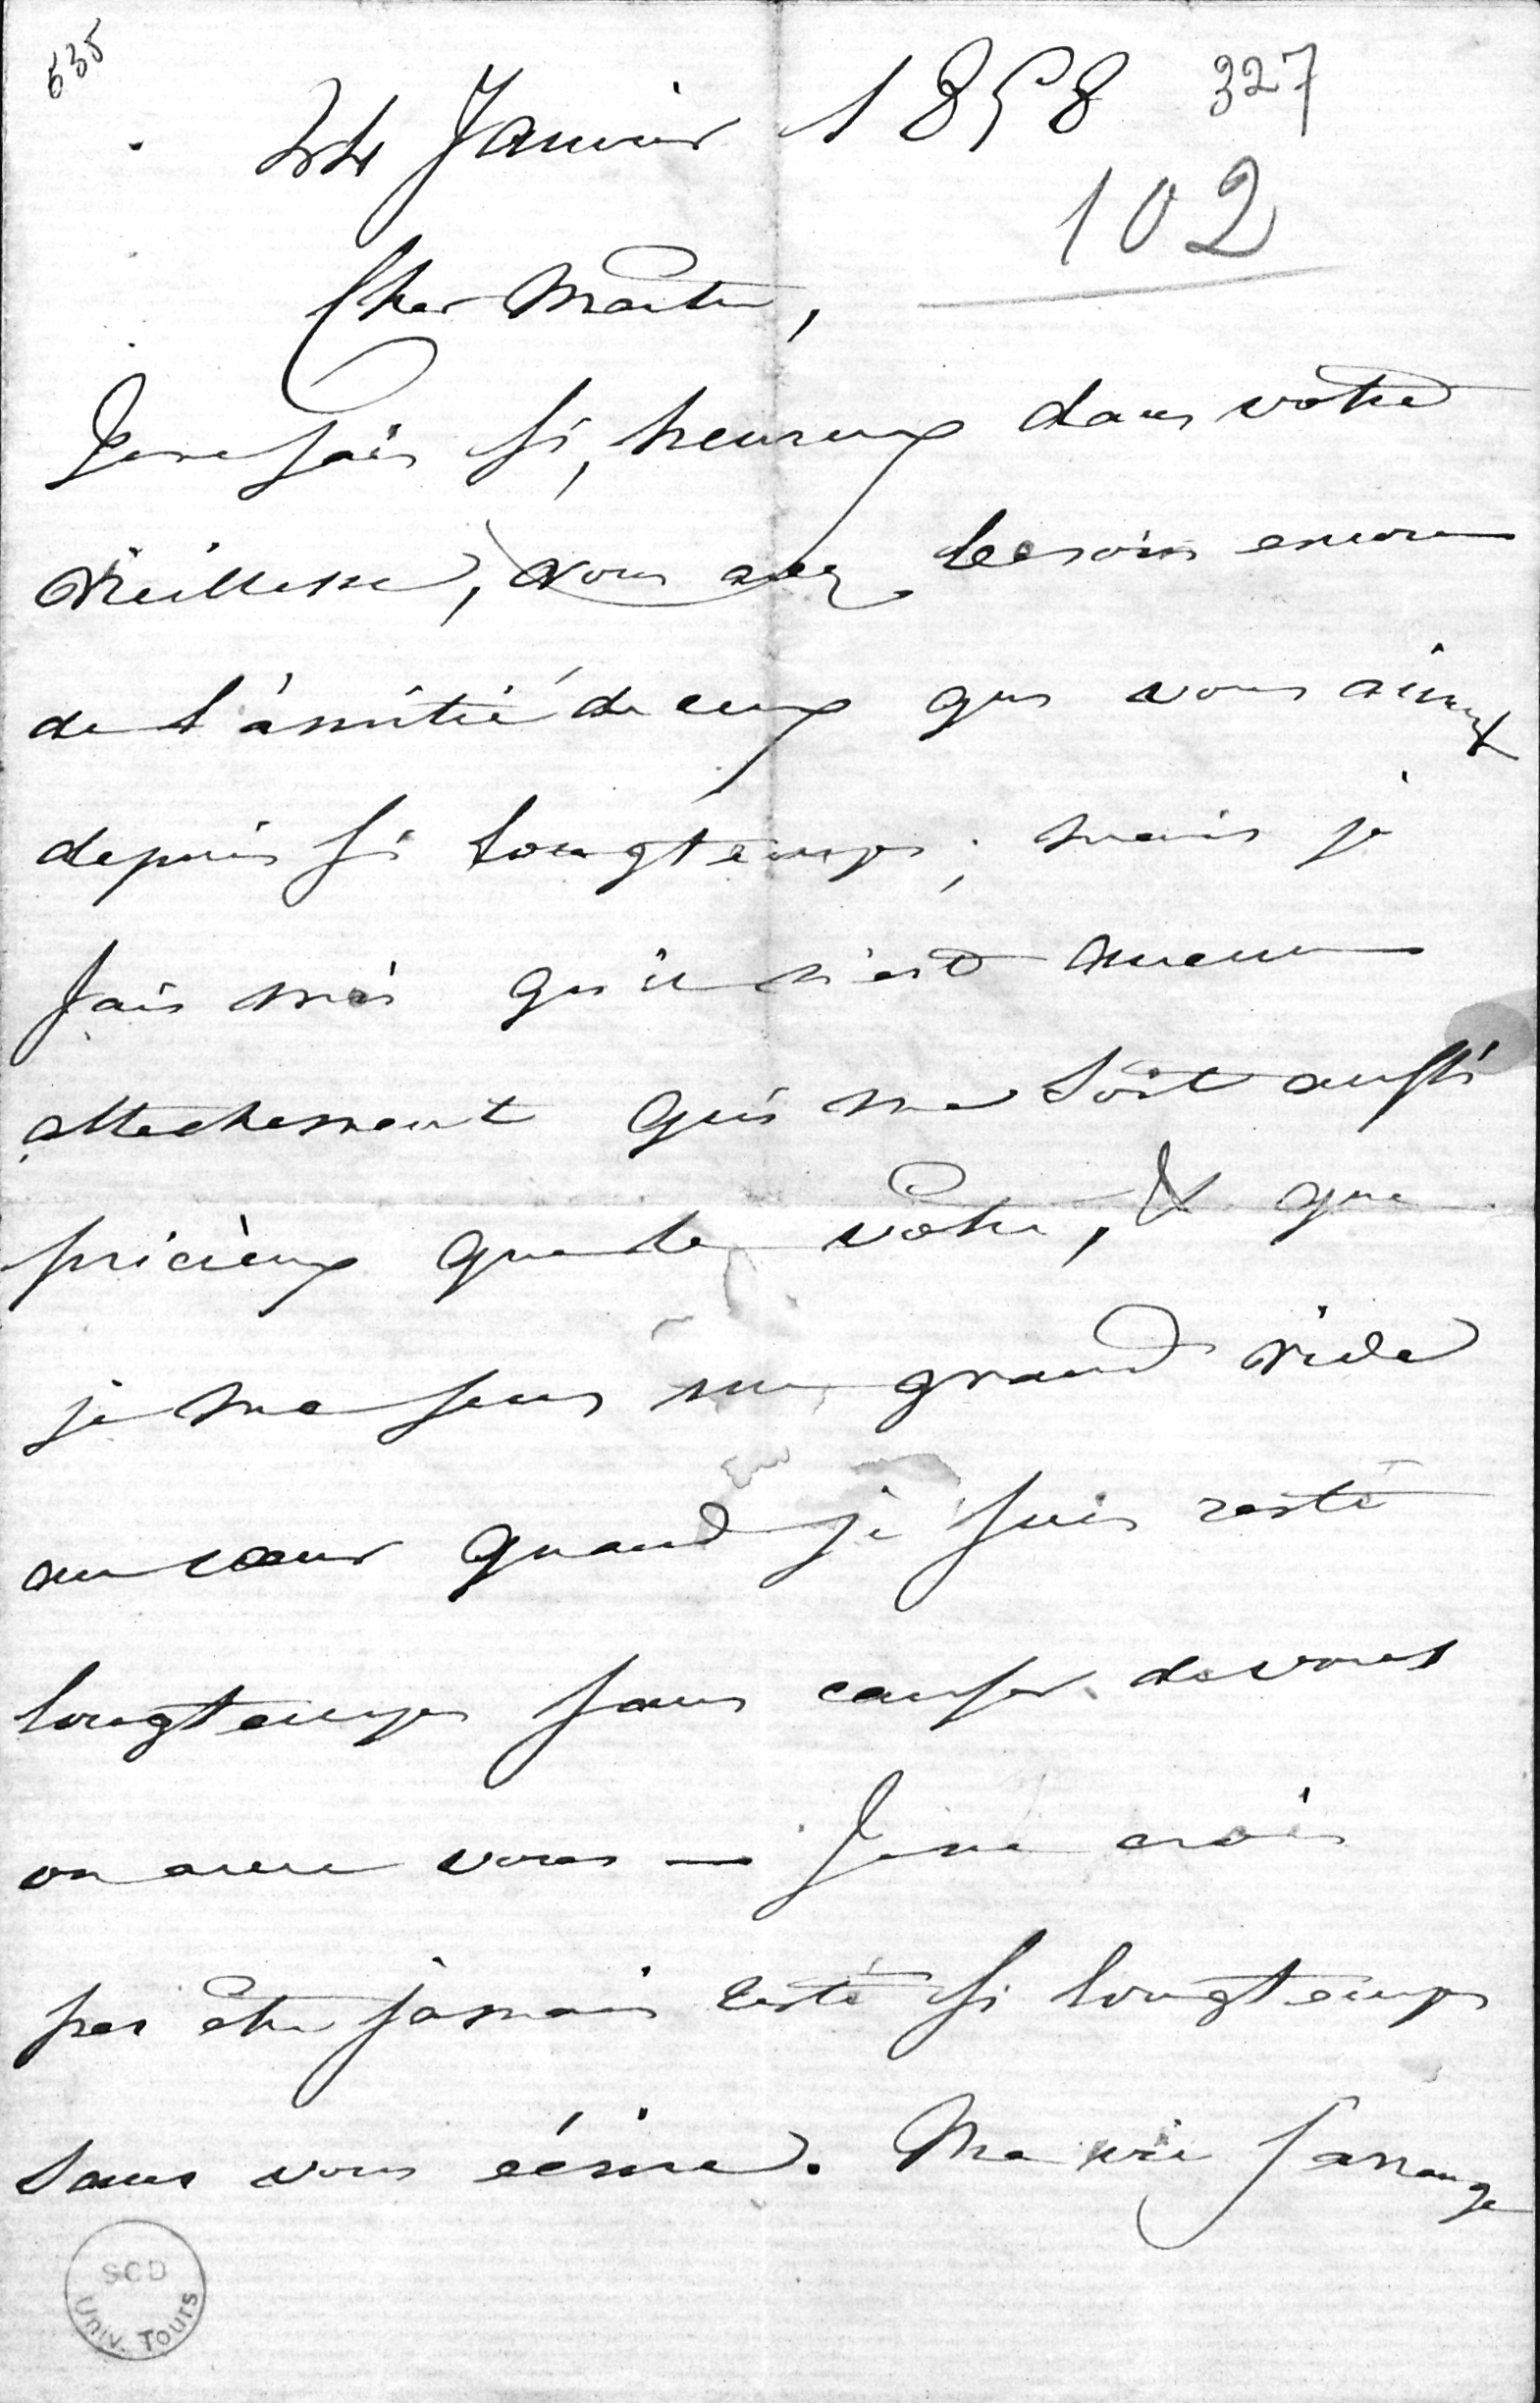 535
24 Janvier 1858 327
102
Cher Maître,
Je ne sais si, heureux dans votre
vieillesse, vous avez besoin encore
de l'amitié de ceux qui vous aiment
depuis si longtemps; mais je
sais moi qu'il n'est aucun
attachement qui me soit aussi
précieux que le vôtre, & que
je me sens un grand vide
au cœur quand je suis resté
longtemps sans causer de vous
ou avec vous — Je ne crois
pas être jamais resté si longtemps
sans vous écrire. Ma vie s'arrange
SCD
Univ. Tours